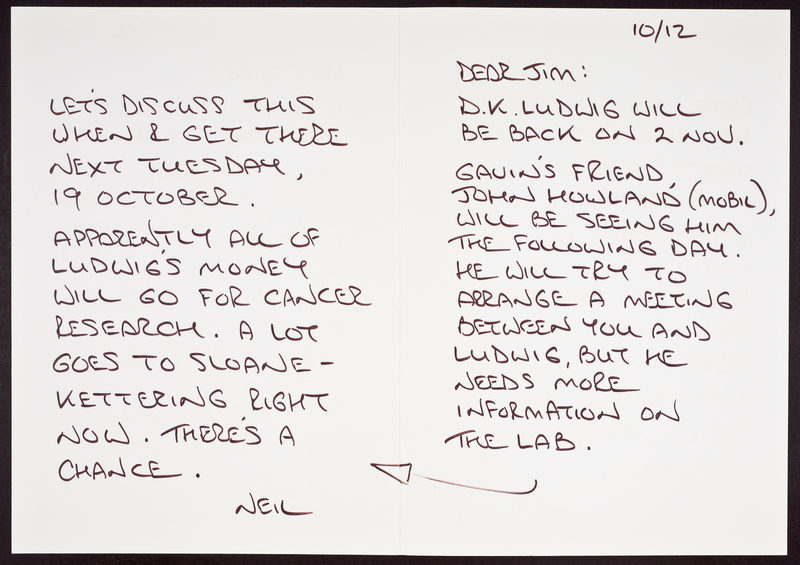 10/12
DEAR JIM:
D.K. LUDWIG WILL
BE BACK ON 2 NOV.
GAVIN'S FRIEND,
JOHN HOWLAND (MOBIL),
WILL BE SEEING HIM
THE FOLLOWING DAY.
HE WILL TRY TO
ARRANGE A MEETING
BETWEEN YOU AND
LUDWIG, BUT HE
NEEDS MORE
INFORMATION ON
THE LAB.
LET'S DISCUSS THIS
WHEN I GET THERE
NEXT TUESDAY,
19 OCTOBER.
APPARENTLY ALL OF
LUDWIG'S MONEY
WILL GO FOR CANCER
RESEARCH. A LOT
GOES TO SLOANE-
KETTERING RIGHT
NOW. THERE'S A
CHANCE.
NEIL